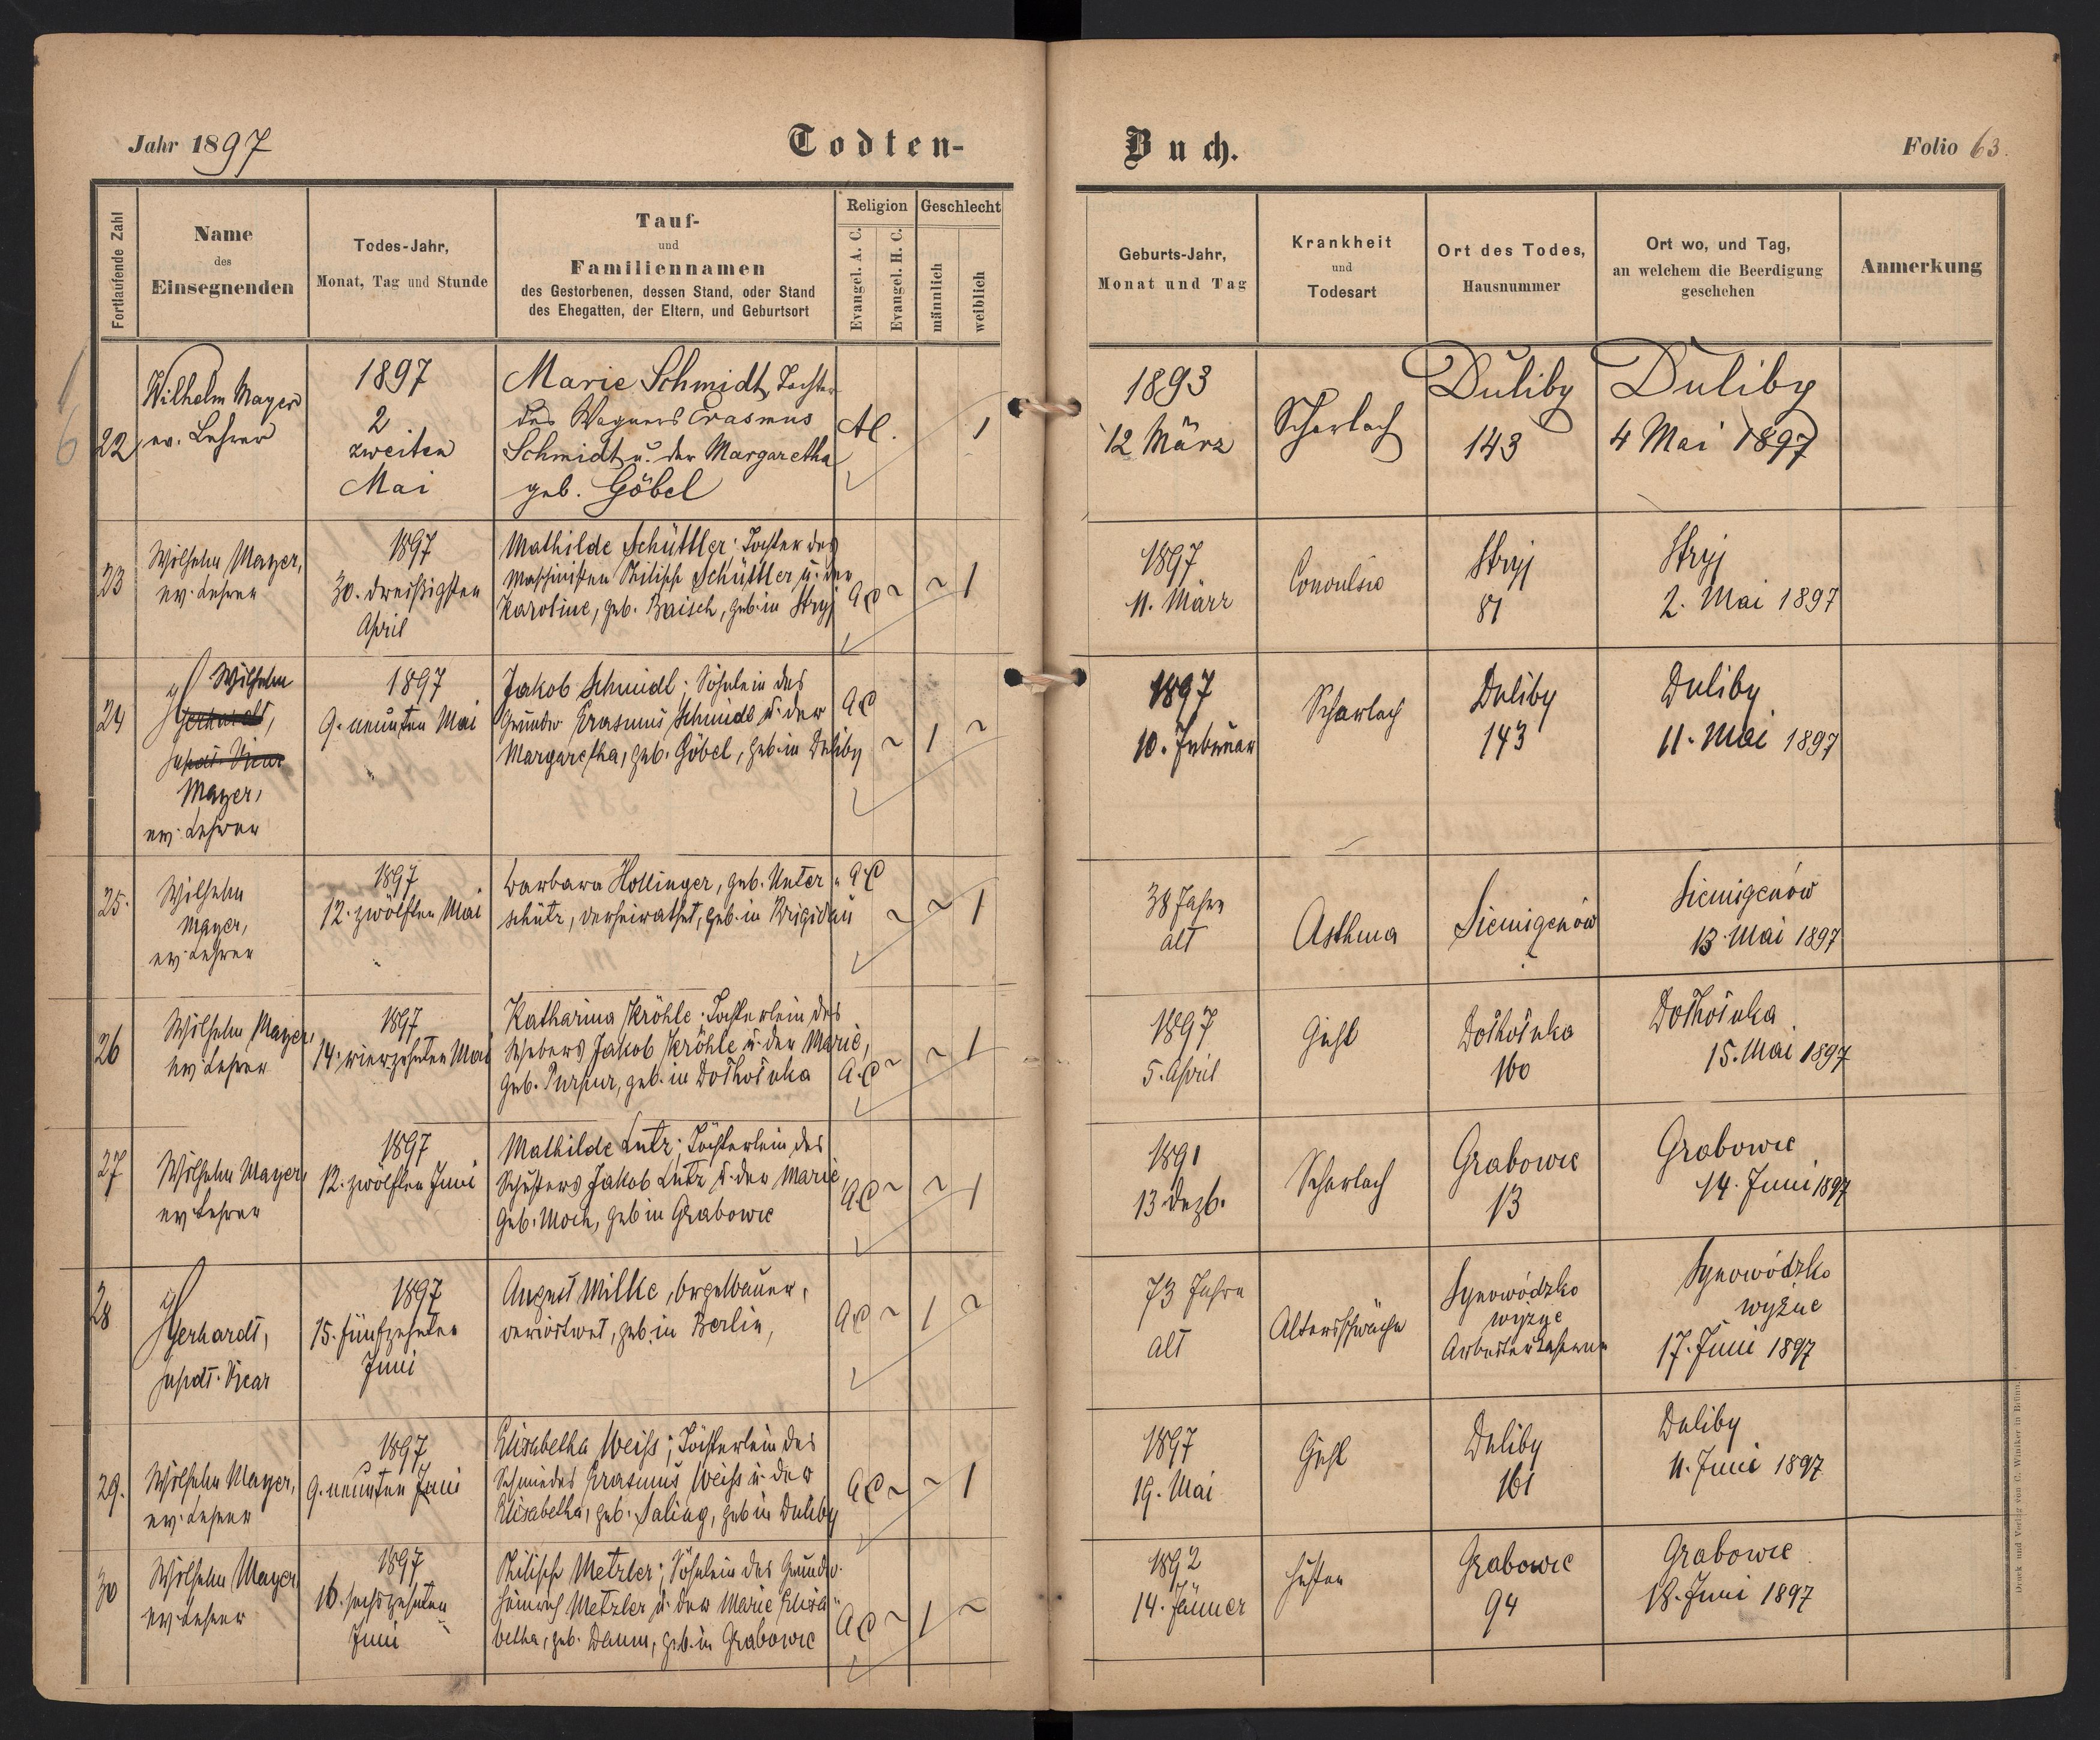 Jahr 1897
Todten-
Buch.
Folio 63.
Fortlaufende Zahl
Name
des
Einsegnenden
Todes-Jahr,
Monat, Tag und Stunde
Tauf-
und
Familiennamen
des Gestorbenen, dessen Stand, oder Stand
des Ehegatten, der Eltern, und Geburtsort
Religion
Evangel. A. C.
Evangel. H. C.
Geschlecht
männlich
weiblich
Geburts-Jahr,
Monat und Tag
Krankheit
und
Todesart
Ort des Todes,
Hausnummer
Ort wo, und Tag,
an welchem die Beerdigung
geschehen
Anmerkung
22
Wilhelm Mayer
ev. Lehrer
1897
2
zweiten
Mai
Marie Schmidt, Tochter
des Wagners Erasmus
Schmidt u. der Margaretha
geb. Göbel
AC.
1
1893
12 März
Scharlach
Duliby
143
Duliby
4 Mai 1897
23
Wilhelm Mayer,
ev. Lehrer
1897
30. dreißigsten
April
Mathilde Schüttler; Tochter des
Maschinisten Philipp Schüttler u. der
Karoline, geb. Baisch, geb. in Stryj
AC ~
~ 1
1897
11. März
Convulsio
Stryj
81
Stryj
2. Mai 1897
24
Wilhelm
Gerhardt,
Supdt. Vicar
Mayer,
ev. Lehrer
1897
9. neunten Mai
Jakob Schmidt; Söhnlein des
Grundw. Erasmus Schmidt u. der
Margaretha, geb. Göbel, geb. in Duliby
AC
~ 1 ~
1897
10. Februar
Scharlach
Duliby
143
Duliby
11. Mai 1897
25.
Wilhelm
Mayer,
ev. Lehrer
1897
12. zwölften Mai
Barbara Hollinger, geb. Unter-
schütz, verheirathet, geb. in Brigidau
AC
~ ~ 1
38 Jahre
alt
Asthma
Siemigenów
Siemigenów
13. Mai 1897
26
Wilhelm Mayer,
ev. Lehrer
1897
14. vierzehnten Mai
Katharina Kröhle; Töchterlein des
Webers Jakob Kröhle u. der Marie,
geb. Purpur, geb. in
A.C ~
~ 1
1897
5. April
160
15. Mai 1897
27
Wilhelm Mayer,
ev. Lehrer
1897
12. zwölften Juni
Mathilde Lutz; Töchterlein des
Schusters Jakob Lutz u. der Marie,
geb. Moch, geb. in Grabowce
AC ~
~ 1
1891
13 Dezb.
Scharlach
Grabowce
13
Grabowce
14. Juni 1897
28
Gerhardt,
Supdt. Vicar
1897
15. fünfzehnten
Juni
August Wilke, Orgelbauer,
verwitwet, geb. in Berlin,
AC ~ 1 ~
73 Jahre
alt
Altersschwäche
Synowódzko
wyżne
Arbeiterkaserne
Synowódzko
wyżne
17. Juni 1897
29.
Wilhelm Mayer,
ev. Lehrer
1897
9. neunten Juni
Elisabetha Weiß; Töchterlein des
Schmiedes Erasmus Weiß u. der
Elisabetha, geb. Saling, geb. in Duliby
AC ~
~ 1
1897
19. Mai
Duliby
161
Duliby
11. Juni 1897
30
Wilhelm Mayer,
ev. Lehrer
1897
16. sechszehnten
Juni
Philipp Metzler; Söhnlein des Grundw.
Heinrich Metzler u. der Marie Elisa-
betha, geb. Daum, geb. in Grabowce
AC ~ 1 ~
1892
14. Jänner
Husten
Grabowce
94
Grabowce
18. Juni 1897
Druck und Verlag von C. Winiker in Brünn.